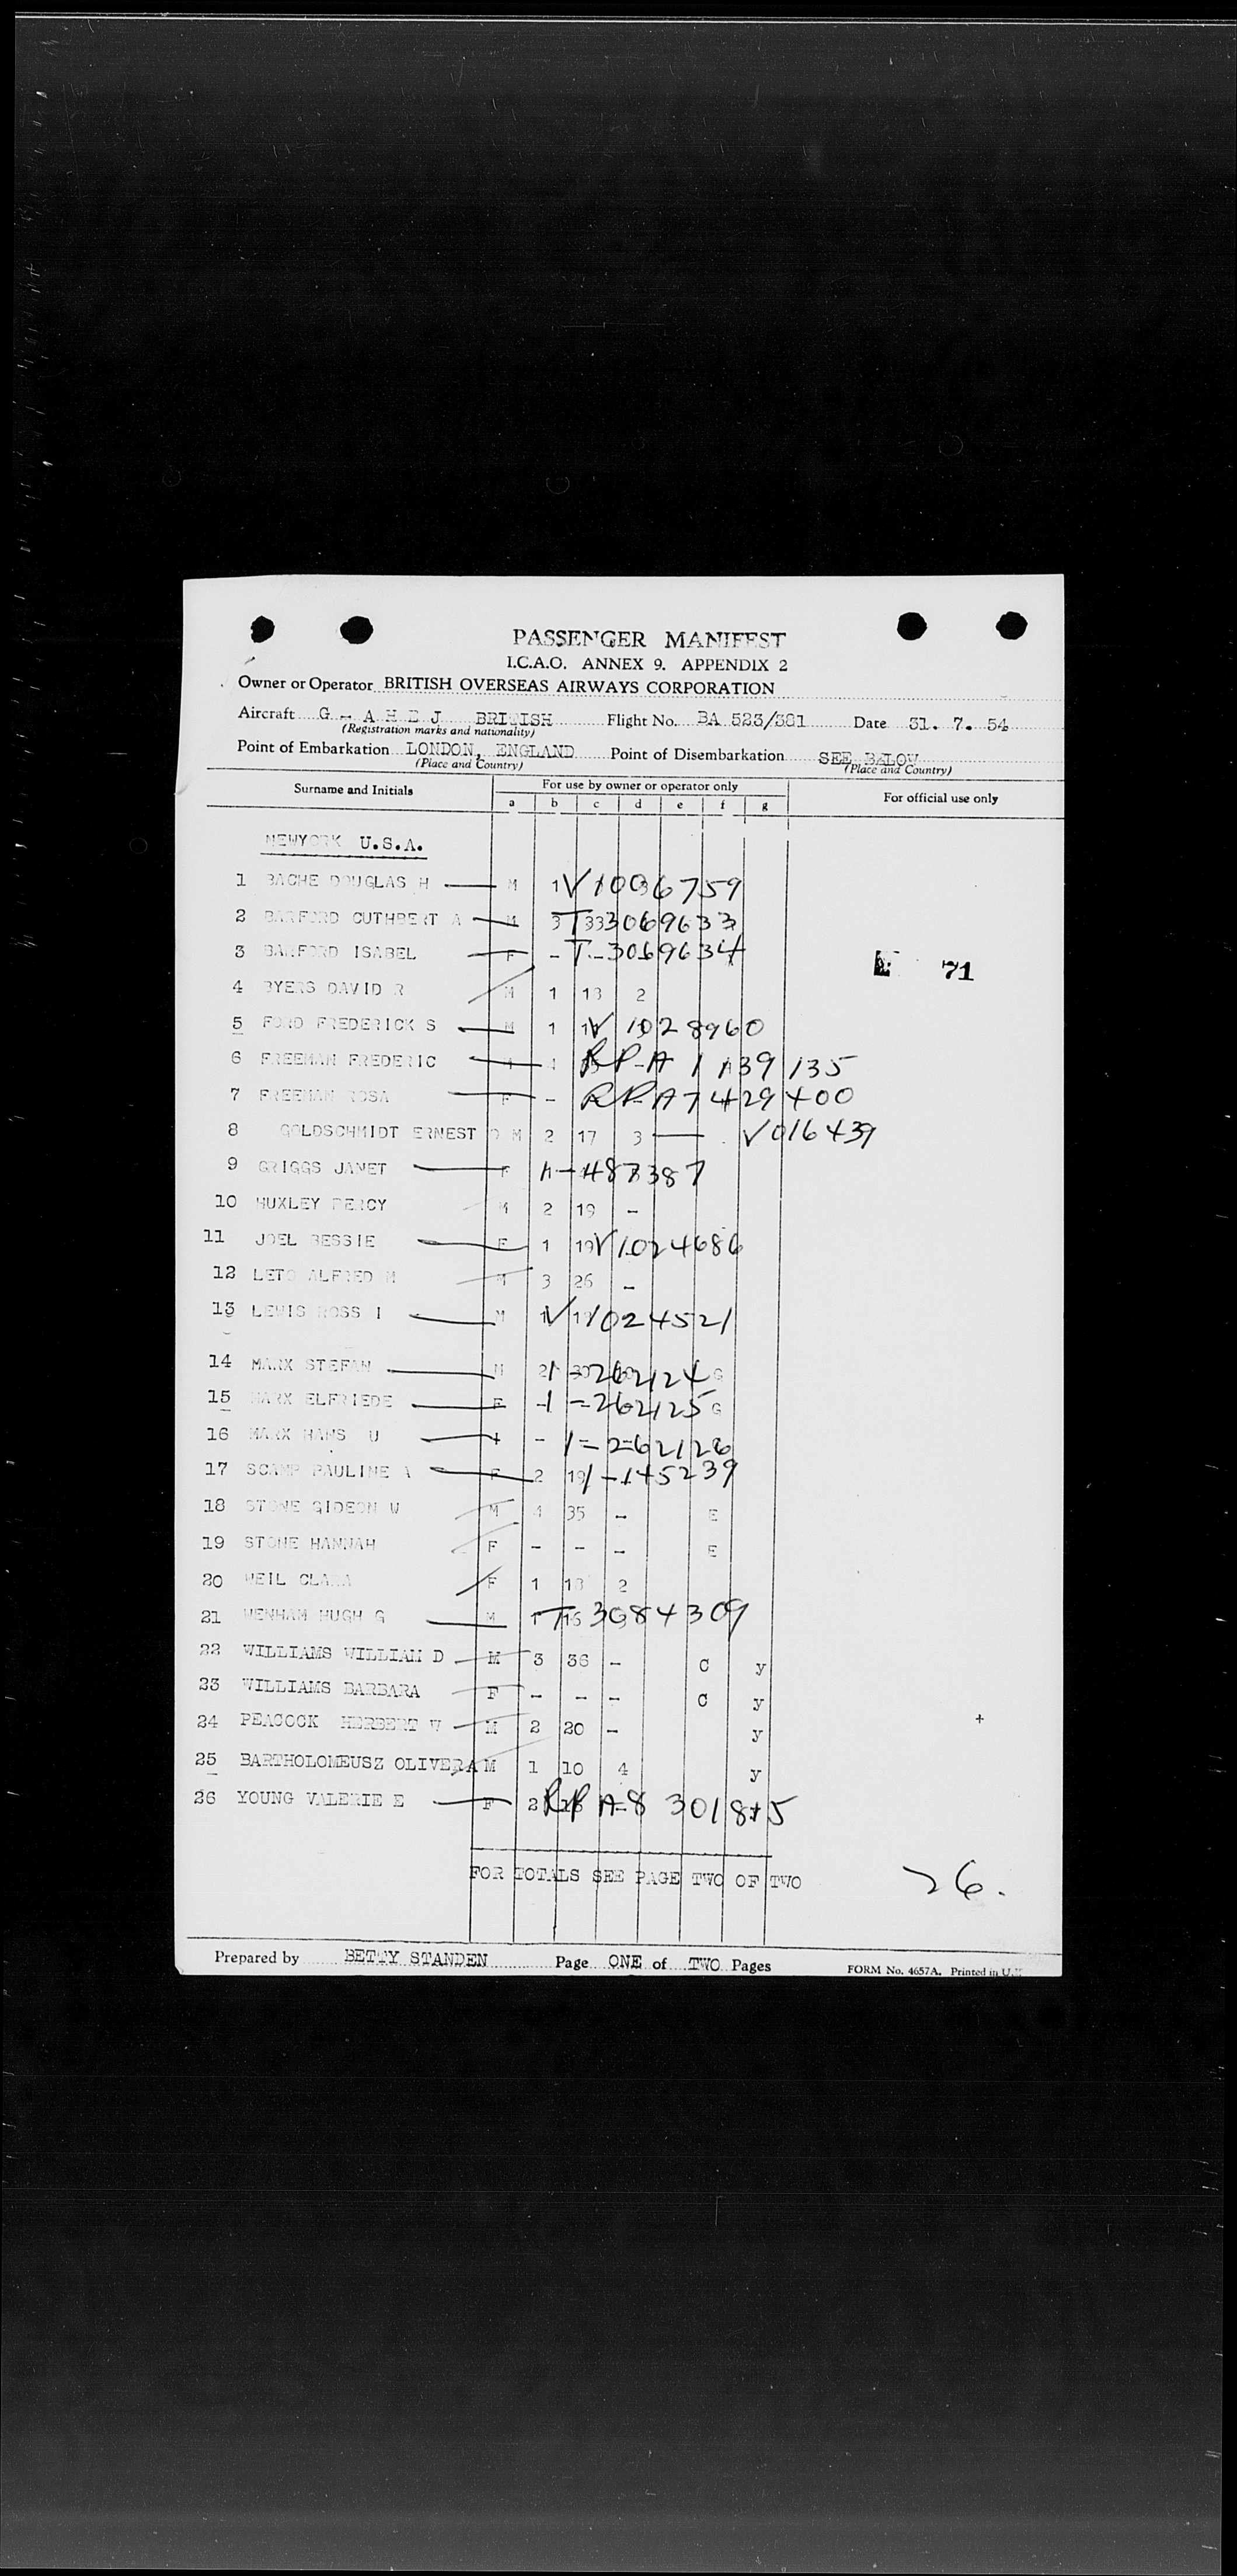 PASSENGER MANIFEST
I.C.A.O. ANNEX 9. APPENDIX 2
Owner or Operator BRITISH OVERSEAS AIRWAYS CORPORATION
Aircraft G - A H E J BRITISH Flight No. BA 523/381 Date 31. 7. 54
(Registration marks and nationality)
Point of Embarkation LONDON, ENGLAND Point of Disembarkation SEE BELOW
(Place and Country) (Place and Country)
Surname and Initials For use by owner or operator only For official use only
a b c d e f g
NEWYORK U.S.A.
1 BACHE DOUGLAS H M 1 V 1006759
2 BARFORD CUTHBERT A M 3 T 33 3069633
3 BARFORD ISABEL F - T - 3069634
71
4 BYERS DAVID R M 1 13 2
5 FORD FREDERICK S M 1 V 1028960
6 FREEMAN FREDERIC M 4 RP-A 1 139135
7 FREEMAN ROSA F - RPA 7 429400
8 GOLDSCHMIDT ERNEST O M 2 17 3 V016439
9 GRIGGS JANET F A-487387
10 HUXLEY PERCY M 2 19 -
11 JOEL BESSIE F 1 19 V1024686
12 LETO ALFRED M M 3 26 -
13 LEWIS ROSS I M 1 V 1024521
14 MARX STEFAN M 2 1-262124 G
15 MARX ELFRIEDE F - 1-262125 G
16 MARX HANS U + - 1-262126
17 SCAMP PAULINE A F 2 19 1-145239
18 STONE GIDEON W M 4 35 - E
19 STONE HANNAH F - - - E
20 WEIL CLARA F 1 13 2
21 WENHAM HUGH G M 1 T 16 3084309
22 WILLIAMS WILLIAM D M 3 36 - C y
23 WILLIAMS BARBARA F - - - C y
24 PEACOCK HERBERT W M 2 20 - y
25 BARTHOLOMEUSZ OLIVER A M 1 10 4 y
26 YOUNG VALERIE E F 2 RP A-8 301845
FOR TOTALS SEE PAGE TWO OF TWO 26.
Prepared by BETTY STANDEN Page ONE of TWO Pages FORM No. 4657A. Printed in U.K.